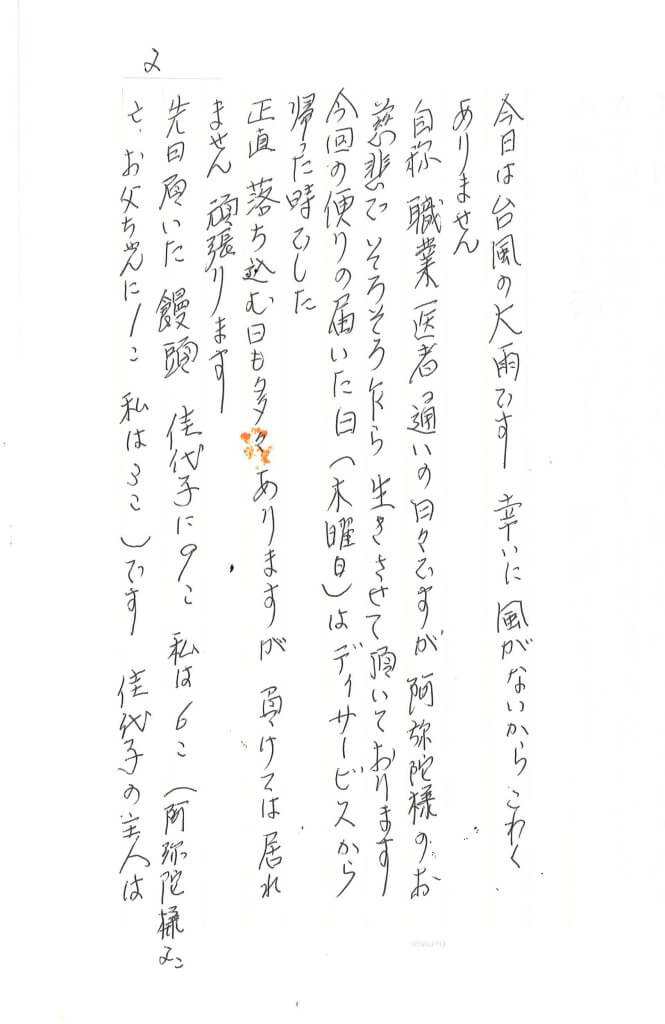 2
今日は台風の大雨です 幸いに風がないからこわく
ありません
自称 職業 医者通いの日々ですが 阿弥陀様のお
慈悲で そろそろながら 生きさせて頂いております
今回の便りの届いた日（木曜日）はディサービスから
帰った時でした
正直 落ち込む日も多々ありますが 負けては居れ
ません 頑張ります
先日頂いた饅頭 佳代子に9こ 私は6こ（阿弥陀様2こ
と、お父ちゃんに1こ 私は3こ）です 佳代子の主人は